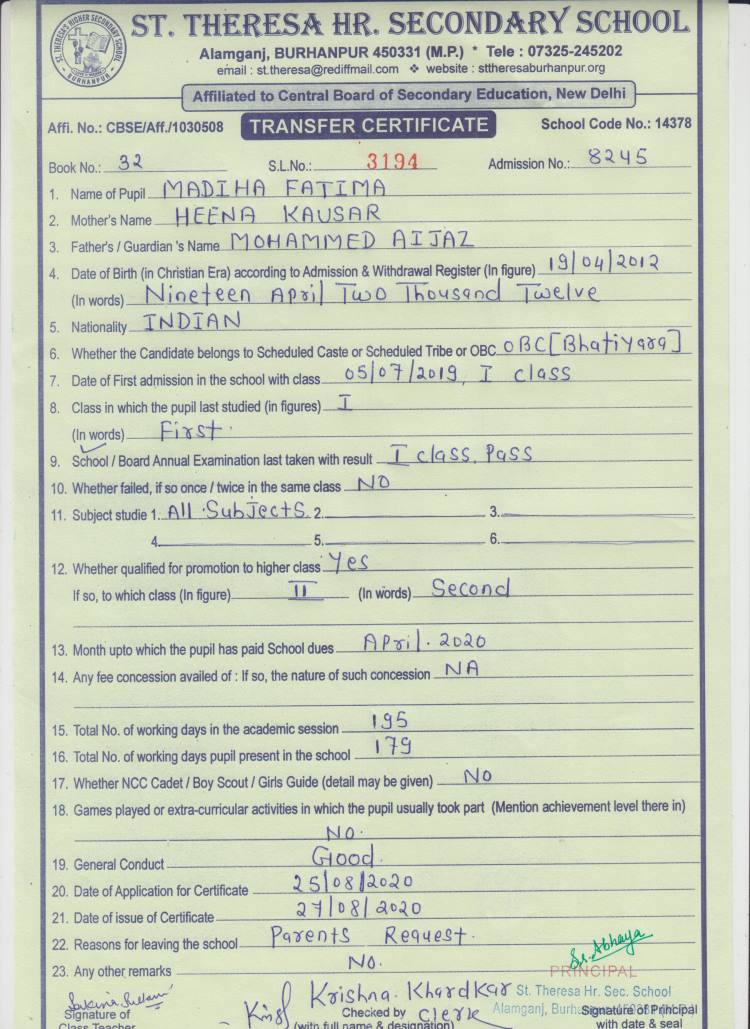 ST. THERESA HR. SECONDARY SCHOOL
Alamganj, BURHANPUR 450331 (M.P.) * Tele : 07325-245202
email : st.theresa@rediffmail.com ❖ website : sttheresaburhanpur.org
Affiliated to Central Board of Secondary Education, New Delhi
Affi. No.: CBSE/Aff./1030508 TRANSFER CERTIFICATE School Code No.: 14378
Book No.: 32 S.L.No.: 3194 Admission No.: 8245
1. Name of Pupil MADIHA FATIMA
2. Mother's Name HEENA KAUSAR
3. Father's / Guardian 's Name MOHAMMED AIJAZ
4. Date of Birth (in Christian Era) according to Admission & Withdrawal Register (In figure) 19/04/2012
(In words) Nineteen April Two Thousand Twelve
5. Nationality INDIAN
6. Whether the Candidate belongs to Scheduled Caste or Scheduled Tribe or OBC OBC [Bhatiyara]
7. Date of First admission in the school with class 05/07/2019, I class
8. Class in which the pupil last studied (in figures) I
(In words) First.
9. School / Board Annual Examination last taken with result I class Pass
10. Whether failed, if so once / twice in the same class NO
11. Subject studie 1. All Subjects 2. 3.
4. 5. 6.
12. Whether qualified for promotion to higher class Yes
If so, to which class (In figure) II (In words) Second
13. Month upto which the pupil has paid School dues April. 2020
14. Any fee concession availed of : If so, the nature of such concession NA
15. Total No. of working days in the academic session 195
16. Total No. of working days pupil present in the school 179
17. Whether NCC Cadet / Boy Scout / Girls Guide (detail may be given) NO
18. Games played or extra-curricular activities in which the pupil usually took part (Mention achievement level there in)
NO.
19. General Conduct Good.
20. Date of Application for Certificate 25/08/2020
21. Date of issue of Certificate 27/08/2020
22. Reasons for leaving the school Parents Request.
23. Any other remarks NO.
Sr. Abhaya
PRINCIPAL
Krishna. Khardkar St. Theresa Hr. Sec. School
Signature of Checked by Clerk Alamganj, Signature of Principal
Class Teacher (with full name & designation) with date & seal